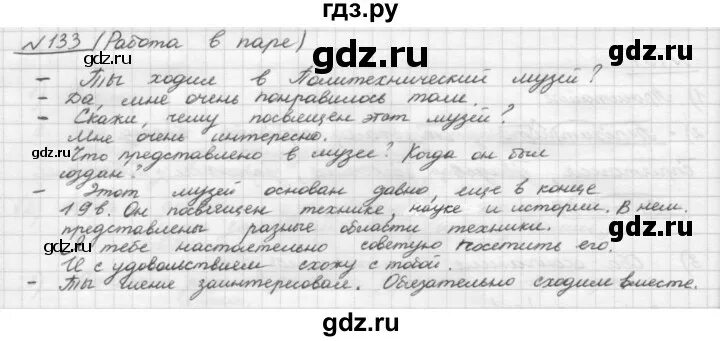 гдз.ру
№133 (Работа в паре)
- Ты ходил в Политехнический музей?
- Да, мне очень понравилось там.
- Скажи, чему посвещен этот музей?
Мне очень интересно.
Что представлено в музее? Когда он был
создан?
- Этот музей основан давно, еще в конце
19в. Он посвещен технике, науке и истории. В нем
представлены разные области техники.
Я тебе настоятельно советую посетить его.
И с удовольствием схожу с тобой.
- Ты меня заинтересовал. Обязательно сходим вместе.
gdz.ru
gdz.ru
gdz.ru
gdz.ru
gdz.ru
gdz.ru
gdz.ru
gdz.ru
gdz.ru
gdz.ru